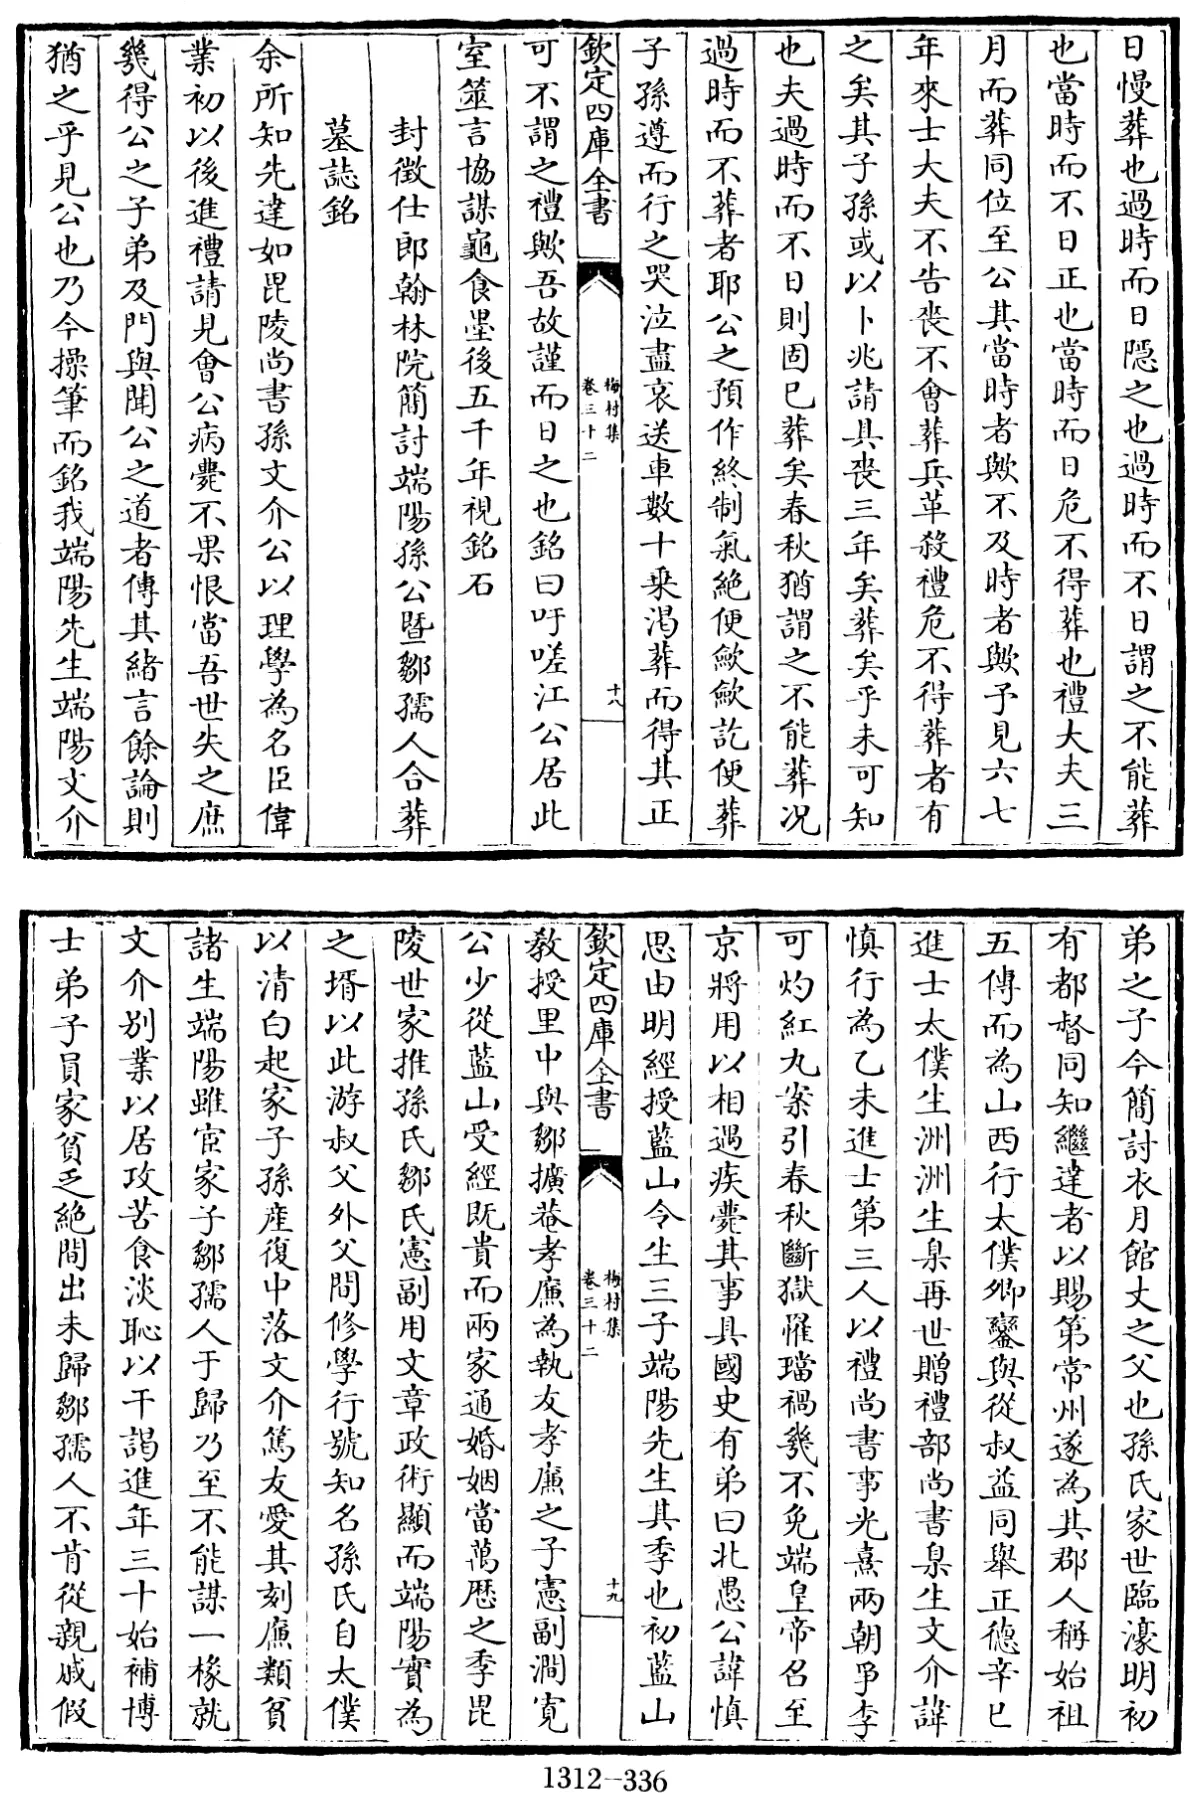 日慢葬也過時而日隱之也過時而不日謂之不能葬
也當時而不日正也當時而日危不得葬也禮大夫三
月而葬同位至公其當時者歟不及時者歟予見六七
年來士大夫不告喪不會葬兵革殺禮危不得葬者有
之矣其子孫或以卜兆請具喪三年矣葬矣乎未可知
也夫過時而不日則固已葬矣春秋猶謂之不能葬况
過時而不葬者耶公之預作終制氣絶便歛歛訖便葬
子孫遵而行之哭泣盡哀送車數十乗渇葬而得其正
欽定四庫全書
梅村集
卷三十二
十八
可不謂之禮歟吾故謹而日之也銘曰吁嗟江公居此
室筮言協謀龜食墨後五千年視銘石
封徵仕郎翰林院簡討端陽孫公暨鄒孺人合葬
墓誌銘
余所知先達如毘陵尚書孫文介公以理學為名臣偉
業初以後進禮請見會公病薨不果恨當吾世失之庶
幾得公之子弟及門與聞公之道者傳其緒言餘論則
猶之乎見公也乃今操筆而銘我端陽先生端陽文介
弟之子今簡討衣月館丈之父也孫氏家世臨濠明初
有都督同知繼達者以賜第常州遂為其郡人稱始祖
五傳而為山西行太僕卿鑾與從叔益同舉正德辛巳
進士太僕生洲洲生臬再世贈禮部尚書臬生文介諱
慎行為乙未進士第三人以禮尚書事光熹兩朝爭李
可灼紅丸案引春秋斷獄罹璫禍幾不免端皇帝召至
京將用以相遇疾薨其事具國史有弟曰北愚公諱慎
思由明經授藍山令生三子端陽先生其季也初藍山
欽定四庫全書
梅村集
卷三十二
十九
敎授里中與鄒擴菴孝廉為執友孝廉之子憲副澗寛
公少從藍山受經既貴而兩家通婚姻當萬厯之季毘
陵世家推孫氏鄒氏憲副用文章政術顯而端陽實為
之壻以此游叔父外父間修學行號知名孫氏自太僕
以清白起家子孫産復中落文介篤友愛其刻廉類貧
諸生端陽雖宦家子鄒孺人于歸乃至不能謀一椽就
文介别業以居攻苦食淡恥以干謁進年三十始補博
士弟子員家貧乏絶間出未歸鄒孺人不肯從親戚假
1312—336